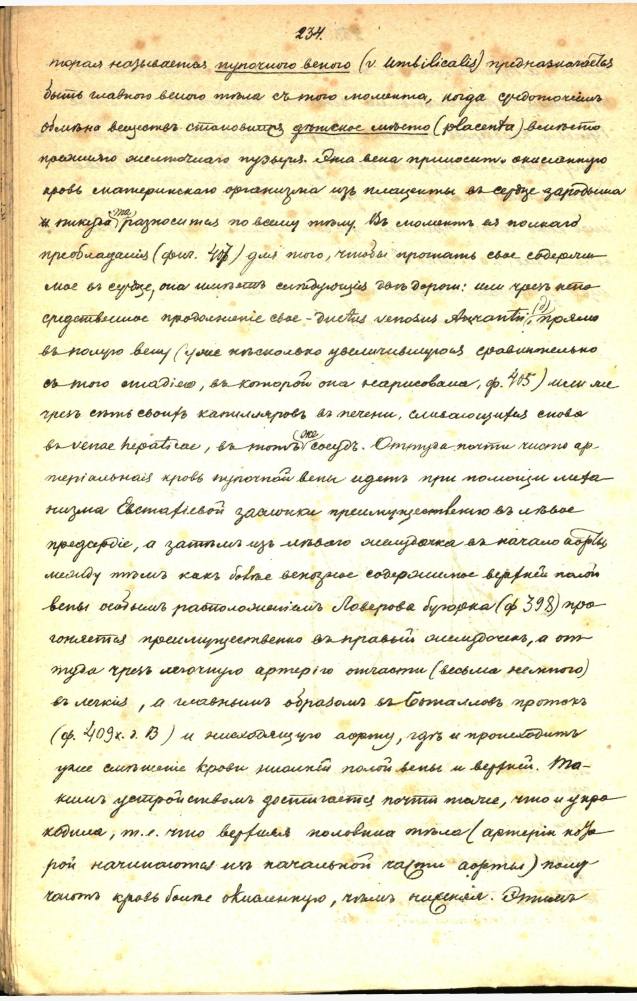 234.
торая называется пупочною веною (v. umbilicalis) предназначается
быть главною веною тѣла съ того момента, когда средоточіемъ
обмѣна веществъ становится дѣтское мѣсто (placenta) вмѣсто
прежняго желточнаго пузыря. Эта вена приноситъ окисленную
кровь материнскаго организма изъ плаценты въ сердце зародыша
и оттуда та разносится по всему тѣлу. Въ моментъ ея полнаго
преобладанія (фиг. 407) для того, чтобы прогнать свое содержи
мое въ сердце, она имѣетъ слѣдующія двѣ дороги: или чрезъ непо
средственное продолженіе свое - ductus venosus Arantii, (d) прямо
въ полую вену (уже нѣсколько увеличившуюся сравнительно
съ того стадіею, въ которой она нарисована, ф. 405) или же
чрезъ сѣть своихъ капилляровъ въ печени, сливающихся снова
въ venae hepaticae, въ тотъ же сосудъ. Оттуда почти чисто ар
теріальная кровь пупочной вены идетъ при помощи меха
низма Евстахіевой заслонки преимущественно въ лѣвое
предсердіе, а затѣмъ изъ лѣваго желудочка въ начало аорты
между тѣмъ какъ болѣе венозное содержимое верхней полой
вены особымъ расположеніемъ Ловерова бугорка (ф 398) про
гоняется преимущественно въ правый желудочекъ, а от
туда чрезъ легочную артерію отчасти (весьма немного)
въ легкія, а главнымъ образомъ въ Боталловъ протокъ
(ф. 409 к. d. B) и нисходящую аорту, гдѣ и происходитъ
уже смѣшеніе крови нижней полой вены и верхней. Та-
кимъ устройствомъ достигается почти тоже, что и у кро
кодила, т. е. что верхняя половина тѣла (артеріи кото
рой начинаются изъ начальной части аорты) полу
чаетъ кровь болѣе окисленную, чѣмъ нижняя. Этимъ